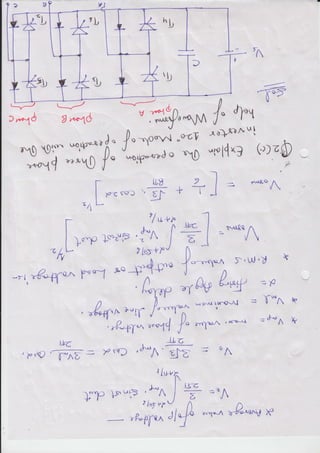 * Average value of o/p voltage —
V₀ = 3/2π ∫ Vmp. Sinωt dωt
V₀ = 3√3/2π . Vmp. Cosα = 3Vml/2π . Cosα.
* Vmp = max. value of phase voltage.
* Vml = maximum value of line voltage.
α = firing Angle delay.
* R.M.S value of output or Load voltage :-
Vorms = [ 3/2π ∫ Vmp². Sin²ωt dωt ]^1/2
Vorms = [ 1/6 + √3/8π . cos2α ]^1/2
Q2(c) Explain the operation of three phase
inverter 120° Mode operation with the
help of Waveform.
Sol
phase A phase B phase C
Vs
C
T1
T3
T5
T4
T6
T2